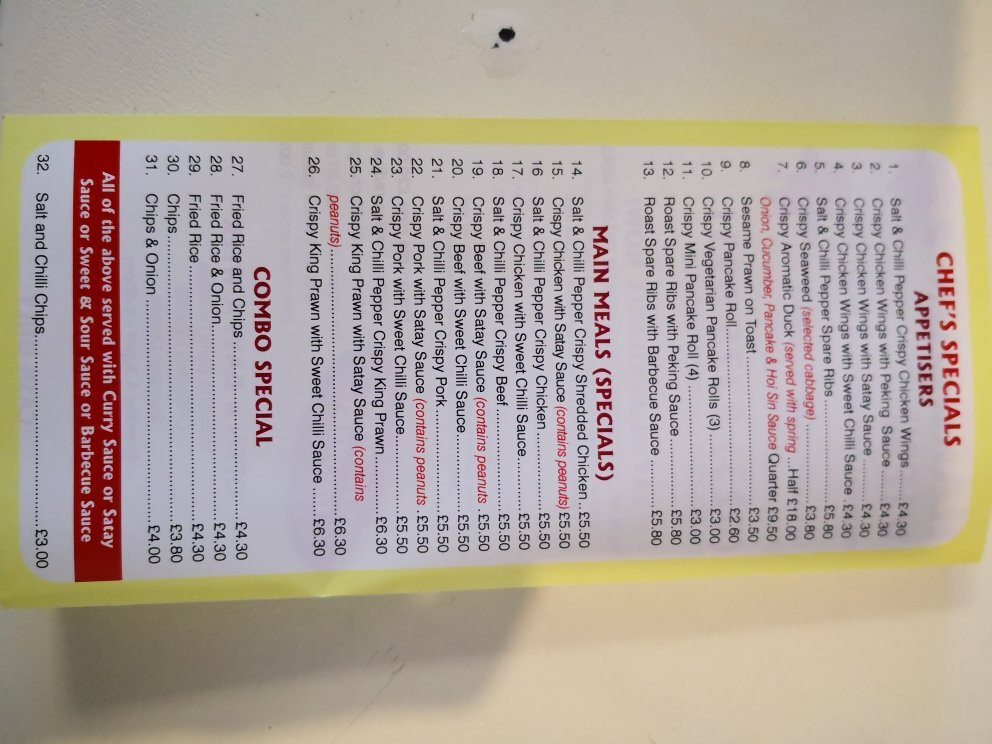 CHEF'S SPECIALS
APPETISERS
1. Salt & Chilli Pepper Crispy Chicken Wings ....... £4.30
2. Crispy Chicken Wings with Peking Sauce ..... £4.30
3. Crispy Chicken Wings with Satay Sauce ....... £4.30
4. Crispy Chicken Wings with Sweet Chilli Sauce . £4.30
5. Salt & Chilli Pepper Spare Ribs ..................... £5.80
6. Crispy Seaweed (selected cabbage) ............. £3.80
7. Crispy Aromatic Duck (served with spring ..Half £18.00
Onion, Cucumber, Pancake & Hoi Sin Sauce Quarter £9.50
8. Sesame Prawn on Toast ............................... £3.50
9. Crispy Pancake Roll....................................... £2.60
10. Crispy Vegetarian Pancake Rolls (3) ............. £3.00
11. Crispy Mini Pancake Roll (4) ......................... £3.00
12. Roast Spare Ribs with Peking Sauce ............. £5.80
13. Roast Spare Ribs with Barbecue Sauce ........ £5.80
MAIN MEALS (SPECIALS)
14. Salt & Chilli Pepper Crispy Shredded Chicken . £5.50
15. Crispy Chicken with Satay Sauce (contains peanuts) £5.50
16 Salt & Chilli Pepper Crispy Chicken ............... £5.50
17. Crispy Chicken with Sweet Chilli Sauce......... £5.50
18. Salt & Chilli Pepper Crispy Beef..................... £5.50
19. Crispy Beef with Satay Sauce (contains peanuts . £5.50
20. Crispy Beef with Sweet Chilli Sauce............... £5.50
21. Salt & Chilli Pepper Crispy Pork..................... £5.50
22. Crispy Pork with Satay Sauce (contains peanuts . £5.50
23. Crispy Pork with Sweet Chilli Sauce............... £5.50
24. Salt & Chilli Pepper Crispy King Prawn .......... £6.30
25. Crispy King Prawn with Satay Sauce (contains
peanuts)........................................................ £6.30
26. Crispy King Prawn with Sweet Chilli Sauce .... £6.30
COMBO SPECIAL
27. Fried Rice and Chips ..................................... £4.30
28. Fried Rice & Onion......................................... £4.30
29. Fried Rice...................................................... £4.30
30. Chips............................................................. £3.80
31. Chips & Onion ............................................... £4.00
All of the above served with Curry Sauce or Satay
Sauce or Sweet & Sour Sauce or Barbecue Sauce
32. Salt and Chilli Chips....................................... £3.00